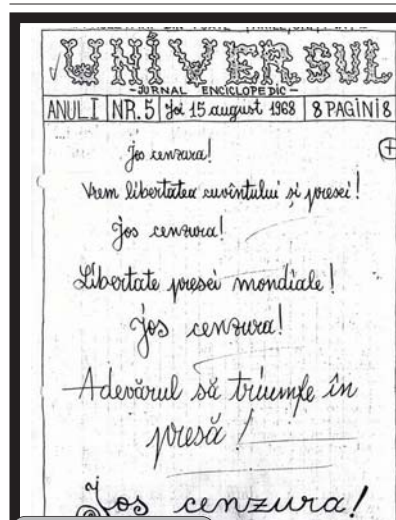 UNIVERSUL
-JURNAL ENCICLOPEDIC-
ANUL I NR. 5 Joi 15 august 1968 8 PAGINI 8
Jos cenzura!
Vrem libertatea cuvîntului și presei!
Jos cenzura!
Libertate presei mondiale!
Jos cenzura!
Adevărul să triumfe în
presă!
Jos cenzura!